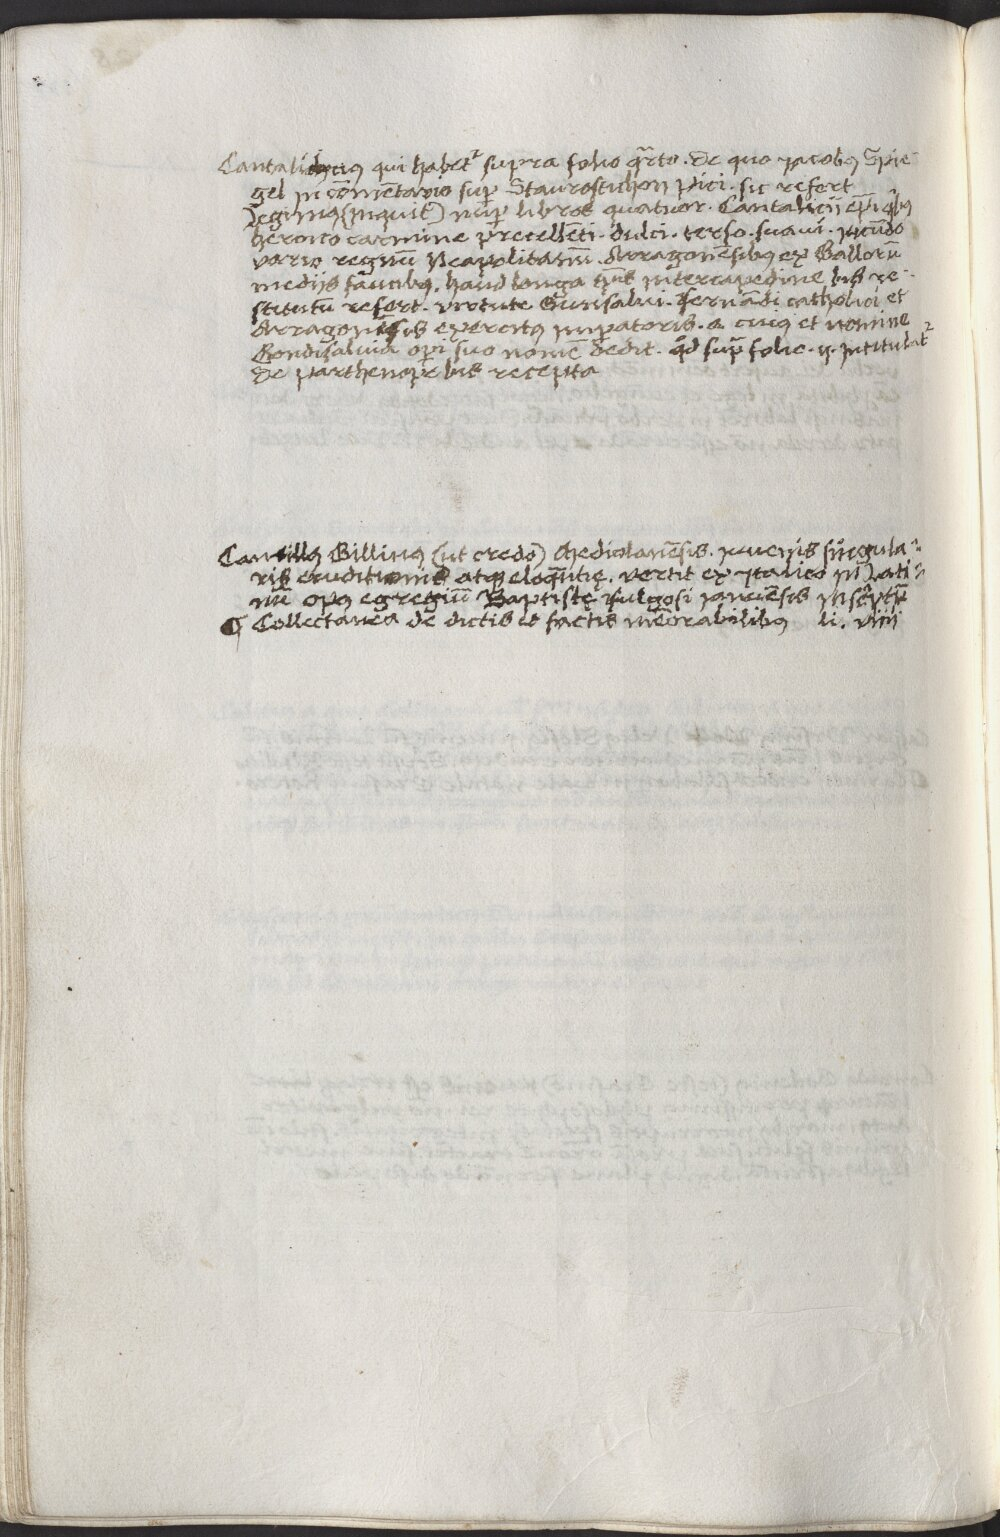 Cantalicius qui habet᷑ supra folio q̄rto. De quo Jacobꝰ Spie-
gel in cōmentario suꝑ Staurostichon Pici. sic refert
Legimus (inquit) nuꝑ libros quatuor. Cantalicij ep̄i qͥbꝰ
heroico carmine precellēti. dulci. terso. suaui. iucūdo
vario regnū Neapolitanū. Arragonēsibꝰ ex Gallorū
medijs faucibꝰ, haud longa tꝑis intercapedine bis re-
stitutū refert. virtute Gunsalui. Fernādi catholici et
Arragonēsis exercitꝰ imꝑatoris. a cuiꝰ et nomine
Gondisaluia oꝑi suo nomē dedit. qd̄ supͣ folio. ij. intitulat᷑
De parthenope bis recepta
Camillꝰ Gillinus (ut credo) Mediolanēsis. iuuenis singula-
ris eruditionis atqꝫ eloquētie. vertit ex Italico in Lati-
nū opꝰ egregiū Baptiste Fulgosi Januēsis inscͥptū
¶ Collectanea de dictis et factis memorabilibꝰ li. viiij